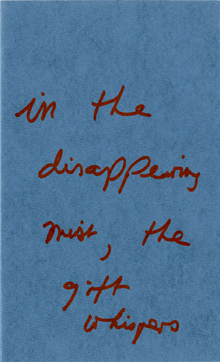 in the
disappearing
mist, the
gift
whispers